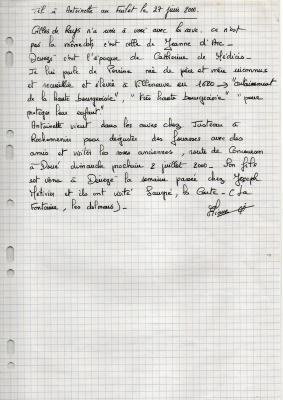 Tél à Antoinette au Foulet le 27 juin 2000.
Gilles de Rays n'a rien à voir avec la cave. Ce n'est
pas la même époque c'est celle de Jeanne d'Arc -
Denezé c'est l'époque de Catherine de Médicis -
Je lui parle de Perrine née de père et mère inconnus
et recueillie et élevée à Villeneuve en 1680 → "certainement
de la haute bourgeoisie", "très haute bourgeoisie" "pour
protéger leur enfant".
Antoinette vient dans les caves chez Justeau à
Rochemenier pour déguster des fouasses avec des
amis et visiter les roses anciennes, route de Concourson
à Doué dimanche prochain 2 juillet 2000 - Son fils
est venu à Denezé la semaine passée chez Joseph
Métivier et ils ont visité Saugré, la Caste - (La
Fontaine, les dolmens) -